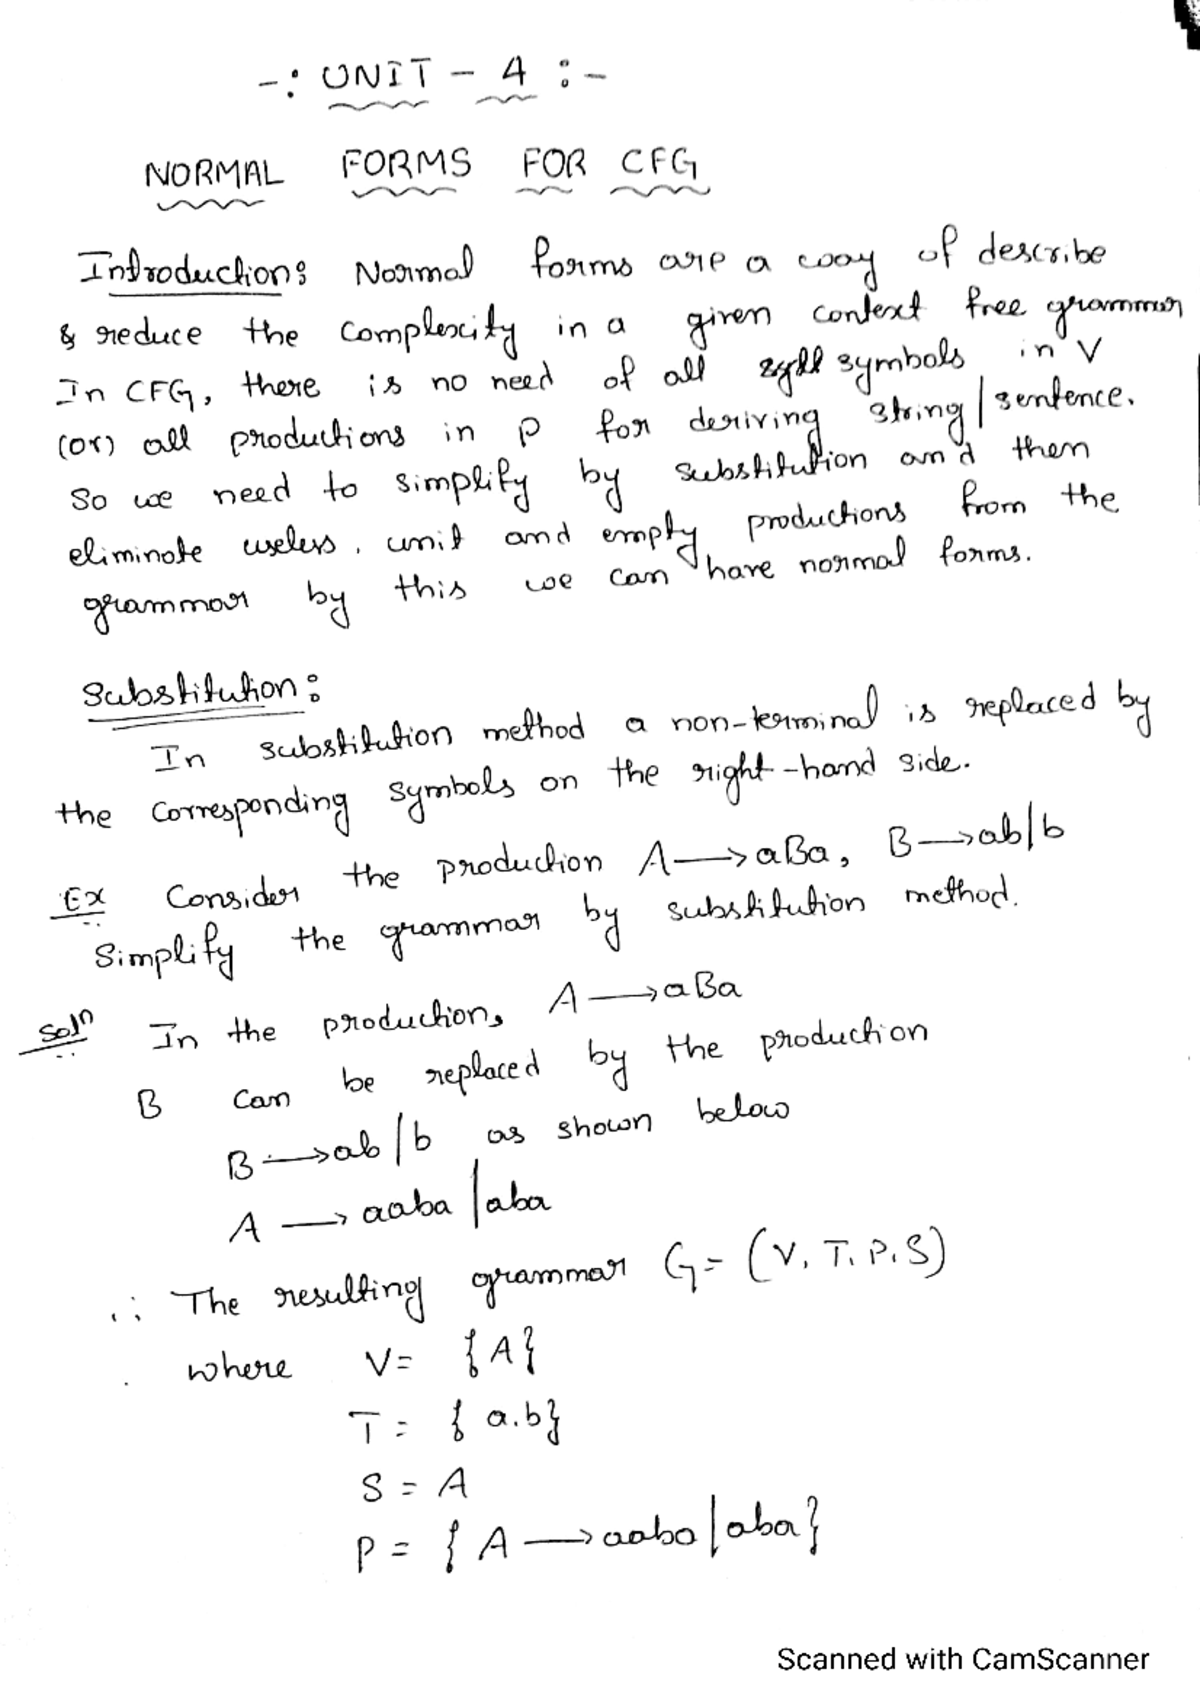 -: UNIT - 4 :-
NORMAL FORMS FOR CFG
Introduction: Normal forms are a way of describe
& reduce the complexity in a given context free grammar
In CFG, there is no need of all symbols in V
(or) all productions in P for deriving string/sentence.
So we need to simplify by substitution and then
eliminate useless, unit and empty productions from the
grammar by this we can have normal forms.
Substitution:
In substitution method a non-terminal is replaced by
the corresponding symbols on the right-hand side.
Ex Consider the production A → aBa, B → ab/b
Simplify the grammar by substitution method.
Soln In the production, A → aBa
B can be replaced by the production
B → ab/b as shown below
A → aaba/aba
∴ The resulting grammar G = (V, T, P, S)
where V = {A}
T = {a.b}
S = A
P = {A → aaba/aba}
Scanned with CamScanner